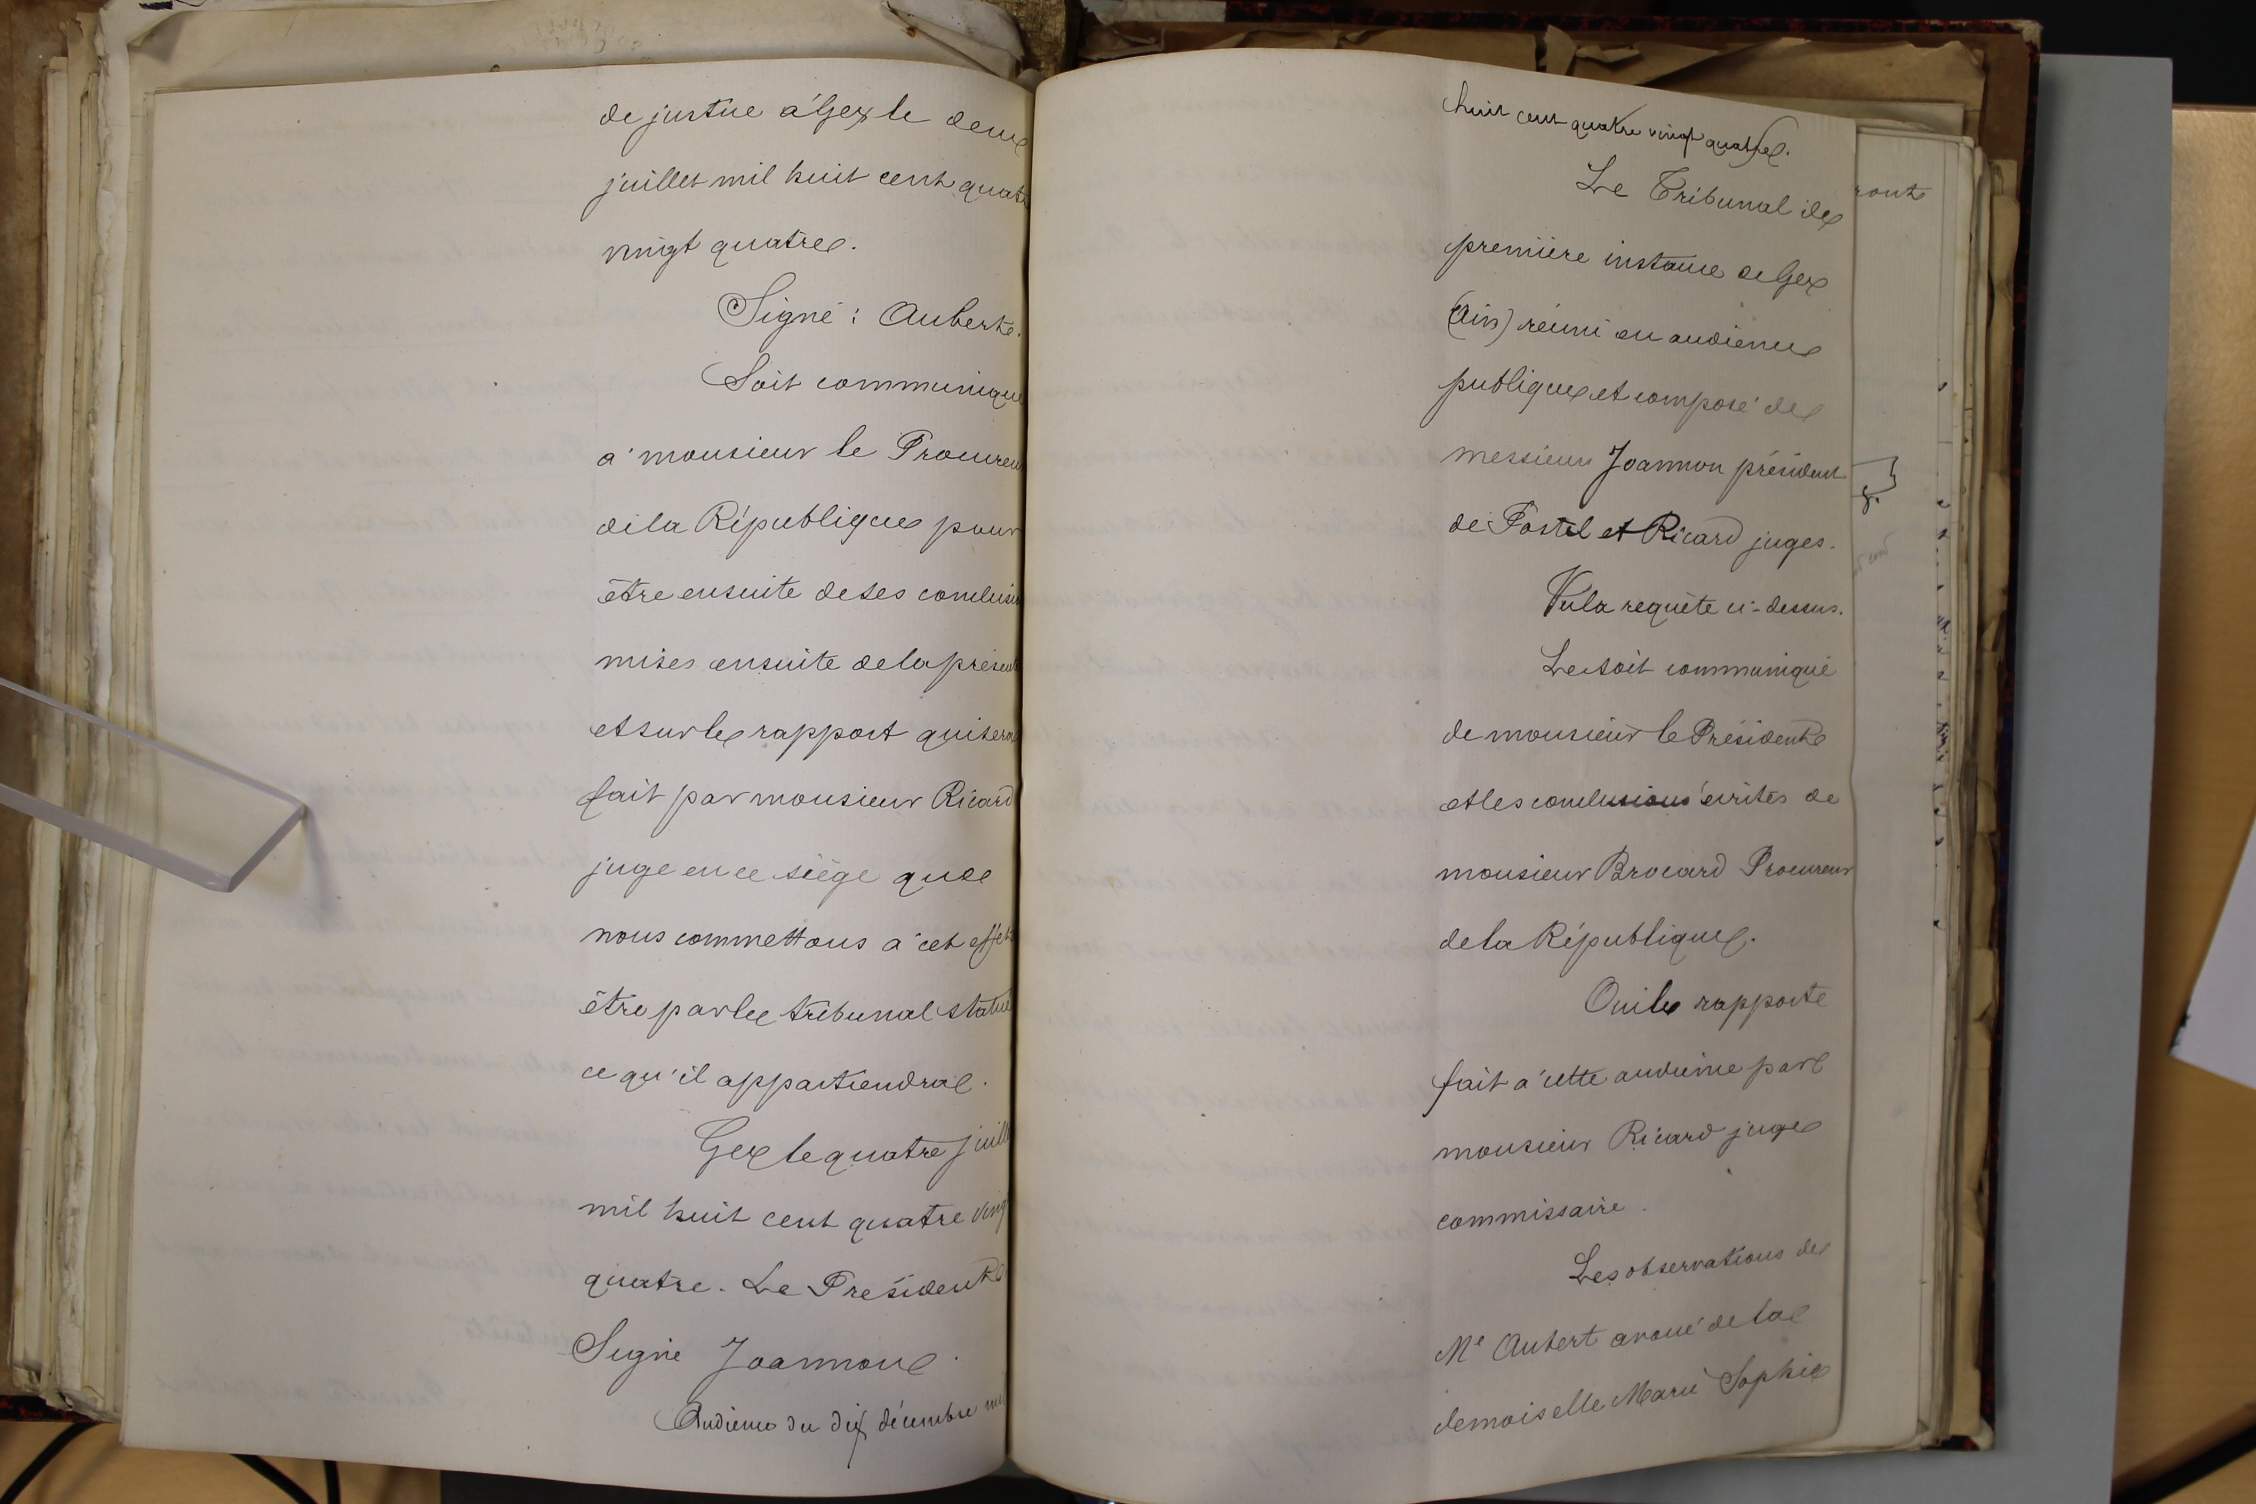 de justice à Gex le deux
juillet mil huit cent quatre
vingt quatre.
Signé : Aubert.
Soit communiqué
à monsieur le Procureur
de la République pour
être ensuite de ses conclusions
mises ensuite de la présente
et sur le rapport qui sera
fait par monsieur Ricard
juge en ce siège que
nous commettons à cet effet
être par le tribunal statué
ce qu'il appartiendra.
Gex le quatre juillet
mil huit cent quatre vingt
quatre. Le Président
Signé Joannon.
Audience du dix décembre mil
huit cent quatre vingt quatre.
Le Tribunal de
première instance de Gex
(Ain) réuni en audience
publique et composé de
messieurs Joannon président
de Fostel et Ricard juges.
Vu la requête ci-dessus.
Le soit communiqué
de monsieur le Président
et les conclusions écrites de
monsieur Brocard Procureur
de la République.
Oui le rapport
fait à cette audience par
monsieur Ricard juge
commissaire.
Les observations de
Me Aubert avoué de la
demoiselle Marie Sophie
ront